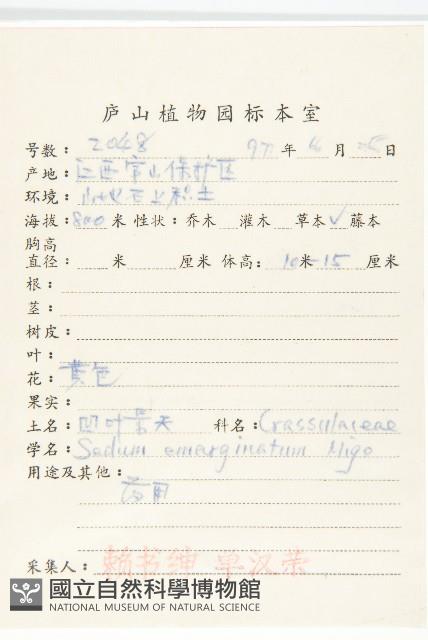 庐山植物园标本室
号数：2048 97年 6月 日
产地：江西 山保护区
环境：山地石上积土
海拔：800米 性状：乔木 灌木 草本✓藤本
胸高
直径： 米 厘米 体高：10米-15厘米
根：
茎：
树皮：
叶：
花：黄色
果实：
土名：凹叶景天 科名：Crassulaceae
学名：Sedum emarginatum Migo
用途及其他：
药用
采集人：赖书绅 单汉荣
國立自然科學博物館
NATIONAL MUSEUM OF NATURAL SCIENCE